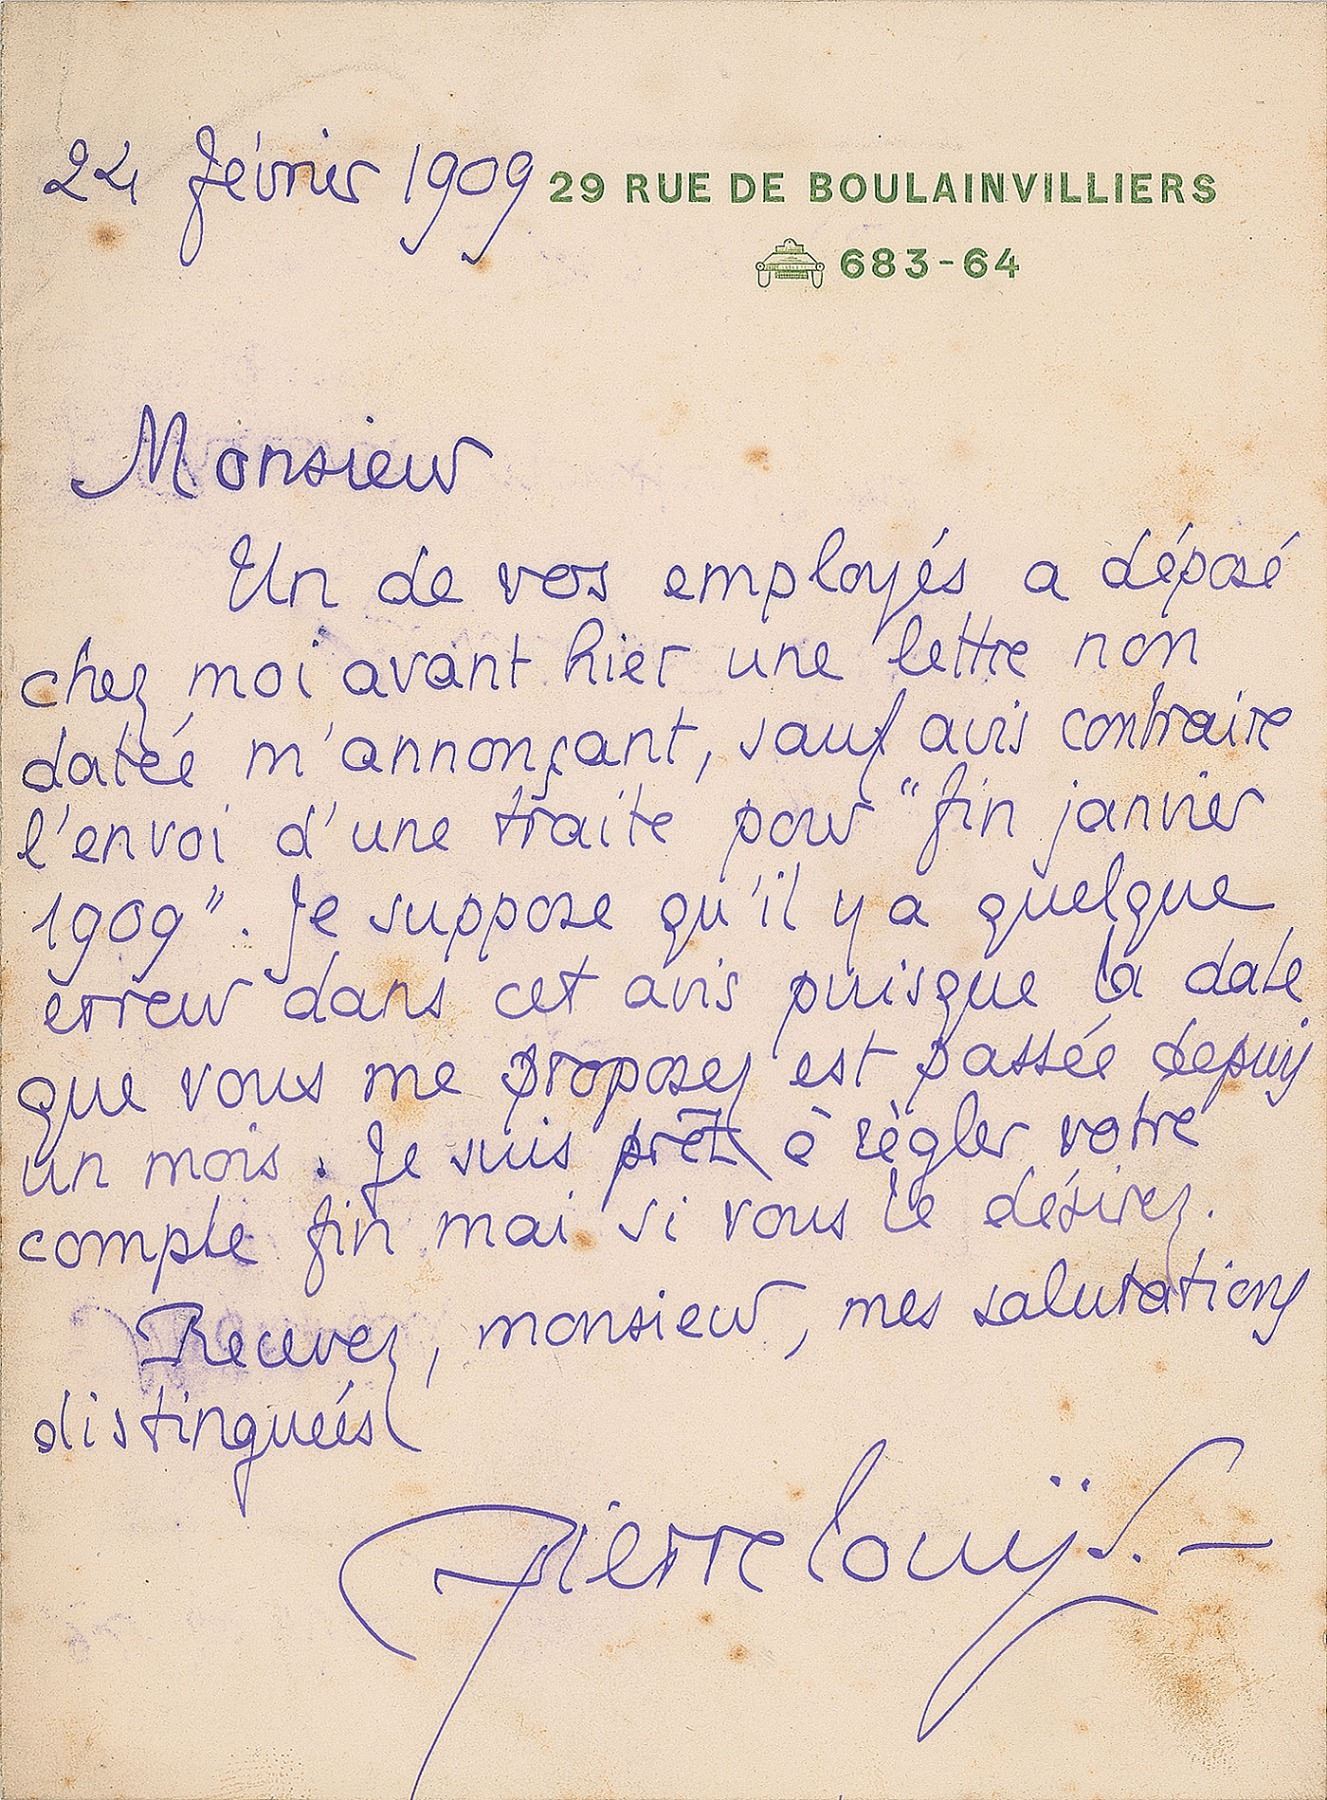 24 février 1909
29 RUE DE BOULAINVILLIERS
683-64
Monsieur
Un de vos employés a déposé
chez moi avant hier une lettre non
datée m'annonçant, sauf avis contraire
l'envoi d'une traite pour "fin janvier
1909". Je suppose qu'il y a quelque
erreur dans cet avis puisque la date
que vous me proposez est passée depuis
un mois. Je suis prêt à règler votre
compte fin mai si vous le désirez.
Recevez, monsieur, mes salutations
distinguées
Pierre Louÿs. —